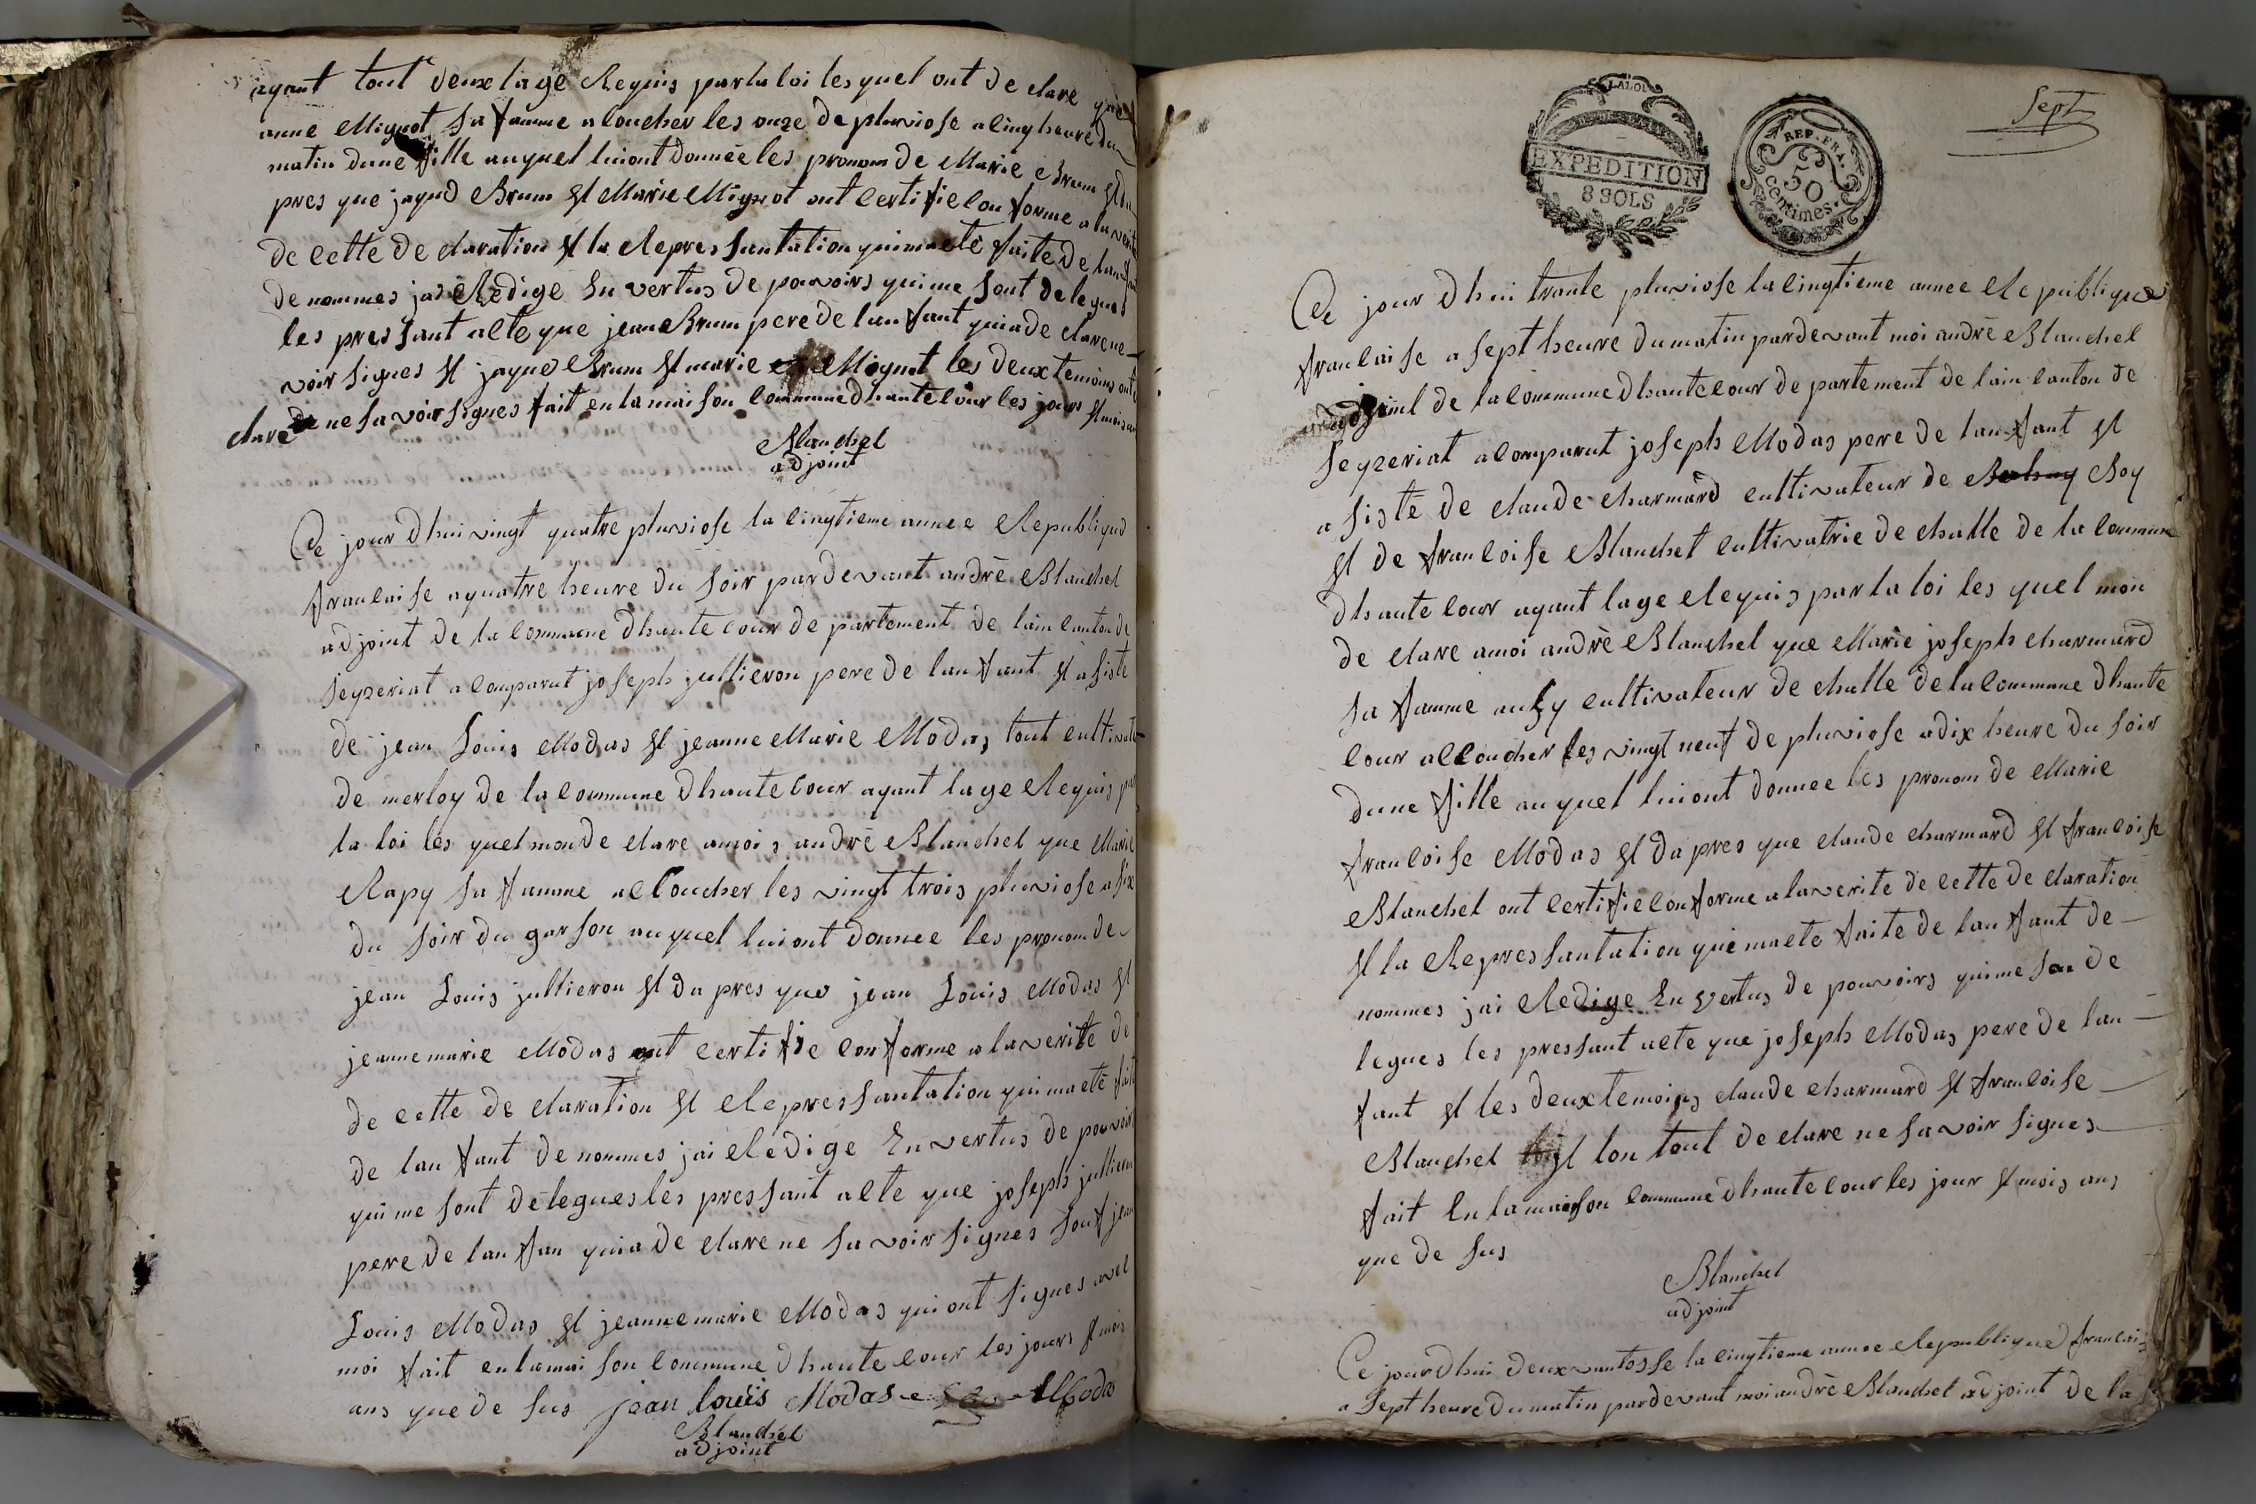 ayant tout deux lage Requis par la loi les quel ont de clare que
anne Mignot sa famme a coucher les onze de pluviose a cinq heure du
matin dune fille au quel lui ont donnée les pronom de Marie Brun et da
pres que jaque Brun et Marie Mignot ont certifie conforme a la verite
de cette de claration et la Representation qui ma eté faite de lanfant
de nommes jai Redige En vertus de pouvoirs qui me sont delegues
les pressant acte que jean Brun pere de lanfant qui a de clare ne
voir signes et jaque Brun et marie Mignot les deux temoins ont
clare de ne savoir signes fait en la maison commune dhautecour les jours et mois an
Blanchet
adjoint
Ce jour dhui vingt quatre pluviose la cinqtieme annee Republique
francaise a quatre heure du soir par devant andrè Blanchet
adjoint de la commune dhautecour de partement de lain canton de
seyzeriat a comparut joseph jullieron pere de lanfant et a siste
de jean Louis Modas et jeanne Marie Modas tout cultivate
de merloy de la commune dhautecour ayant lage Requis par
la loi les quel mon de clare a mois andrè Blanchet que Marie
Rapy sa famme accoucher les vingt trois pluviose a six
du soir du garson au quel lui ont donnee les pronom de
jean Louis jullieron et da pres que jean Louis Modas et
jeanne marie Modas ont certifie conforme a la verite de
de cette de claration et Representation qui ma eté faite
de lanfant de nommes jai Redige En vertus de pouvoir
qui me sont delegues les pressant acte que joseph jullieron
pere de lanfan qui a de clare ne savoir signes sauf jean
Louis Modas et jeanne marie Modas qui ont signes avec
moi fait en la maison commune dhautecour les jours et mois
ans que de sus jean louis Modas Moda
Blanchet
adjoint
Sept
LA LOI
EXPEDITION
8 SOLS
REP. FRA.
50
centimes.
Ce jour dhui trante pluviose la cinqtieme annee Republique
francaise a sept heure du matin par devant moi andrè Blanchet
adjoint de la commune dhautecour de partement de lain canton de
seyzeriat a comparut joseph Modas pere de lanfant et
a sistè de claude charmard cultivateur de Boy
et de francoise Blanchet cultivatrie de challe de la commune
dhautecour ayant lage Requis par la loi les quel mon
de clare a moi andrè Blanchet que Marie joseph charmard
sa famme ausy cultivateur de challe de la commune dhaute
cour accoucher les vingt neuf de pluviose a dix heure du soir
dune fille au quel lui ont donnee les pronom de Marie
francoise Modas et da pres que claude charmard et francoise
Blanchet ont certifie conforme a la verite de cette de claration
et la Representation qui ma ete faite de lanfant de
nommes jai Redige En vertus de pouvoirs qui me son de
legues les pressant acte que joseph Modas pere de lan
fant et les deux temoins claude charmard et francoise
Blanchet et lon tout de clare ne savoir signes
fait En la maison commune dhautecour les jour et mois ans
que de sus
Blanchet
adjoint
Ce jour dhui deux vantosse la cinqtieme annee Republique francais
a sept heure du matin par devant moi andrè Blanchet adjoint de la